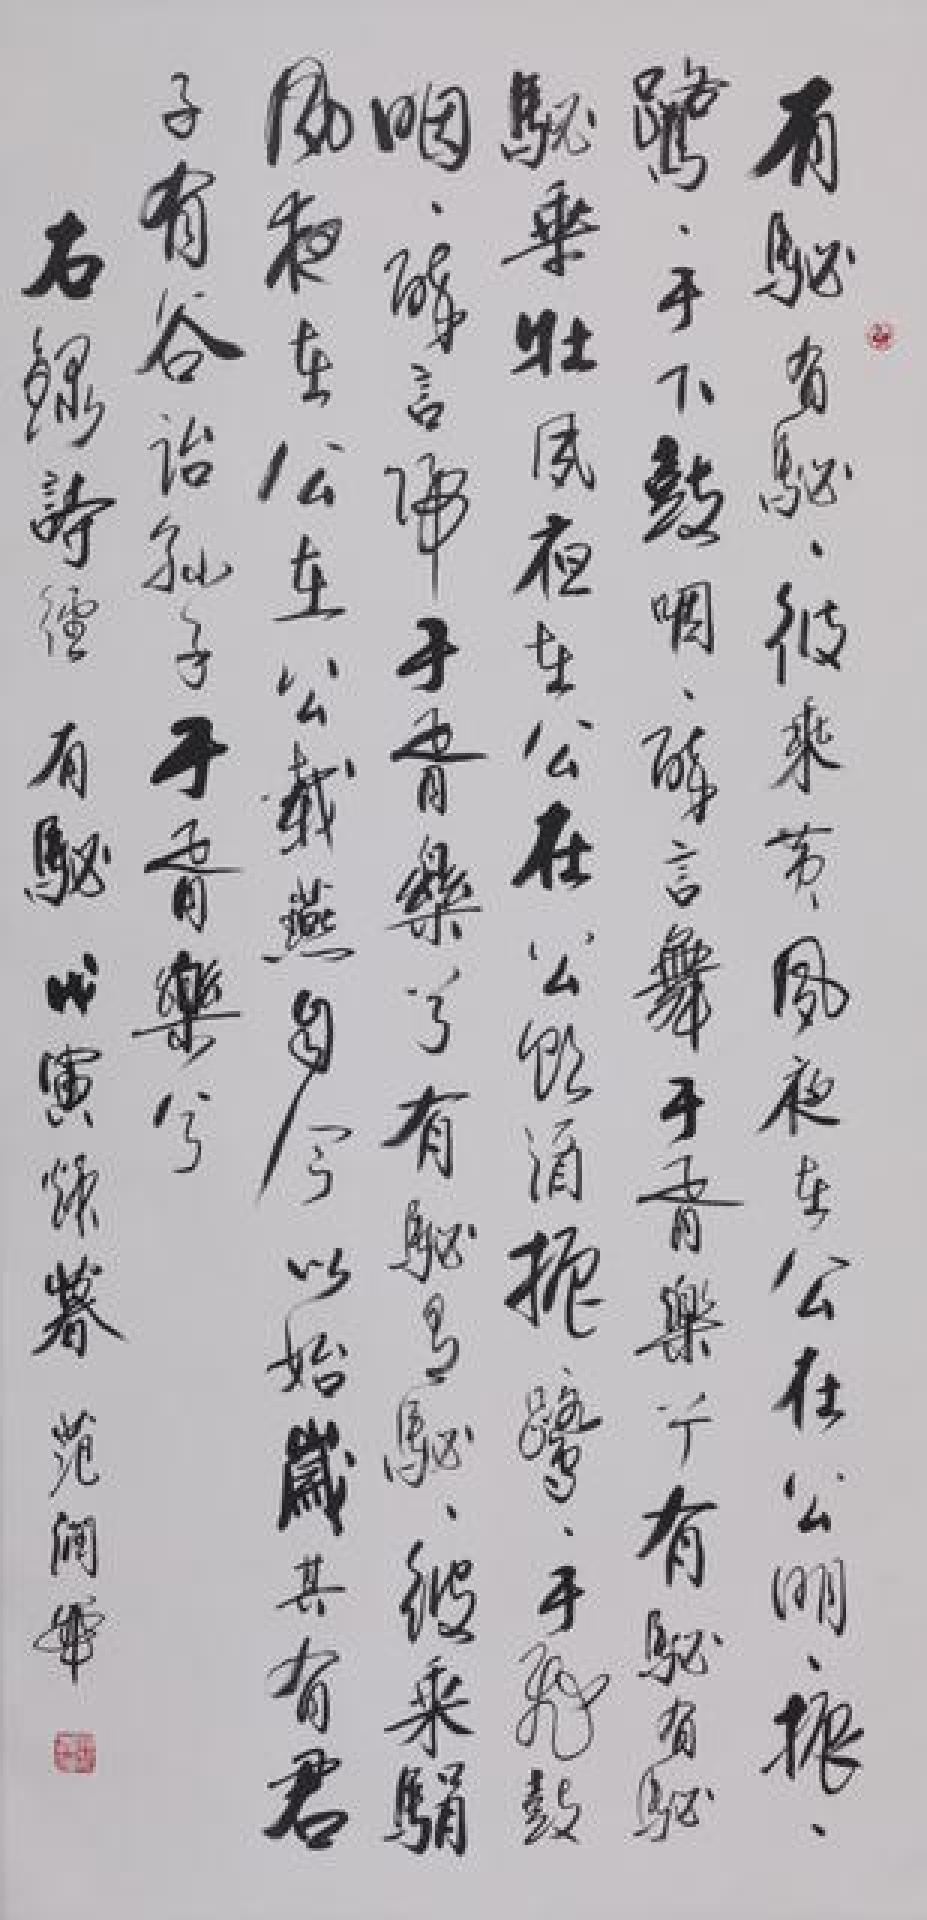 有駜有駜、彼乘黄夙夜在公在公明、振、
鷺、于下鼓咽、醉言舞于胥樂兮有駜有駜
駜乘牡夙夜在公在公飲酒振鷺、于飛鼓
咽、醉言歸于胥樂兮有駜有駜、彼乘駽
夙夜在公在公載燕自今以始歲其有君
子有谷詒孫子于胥樂兮
右録詩經 有駜 戊寅秋暮 范潤華